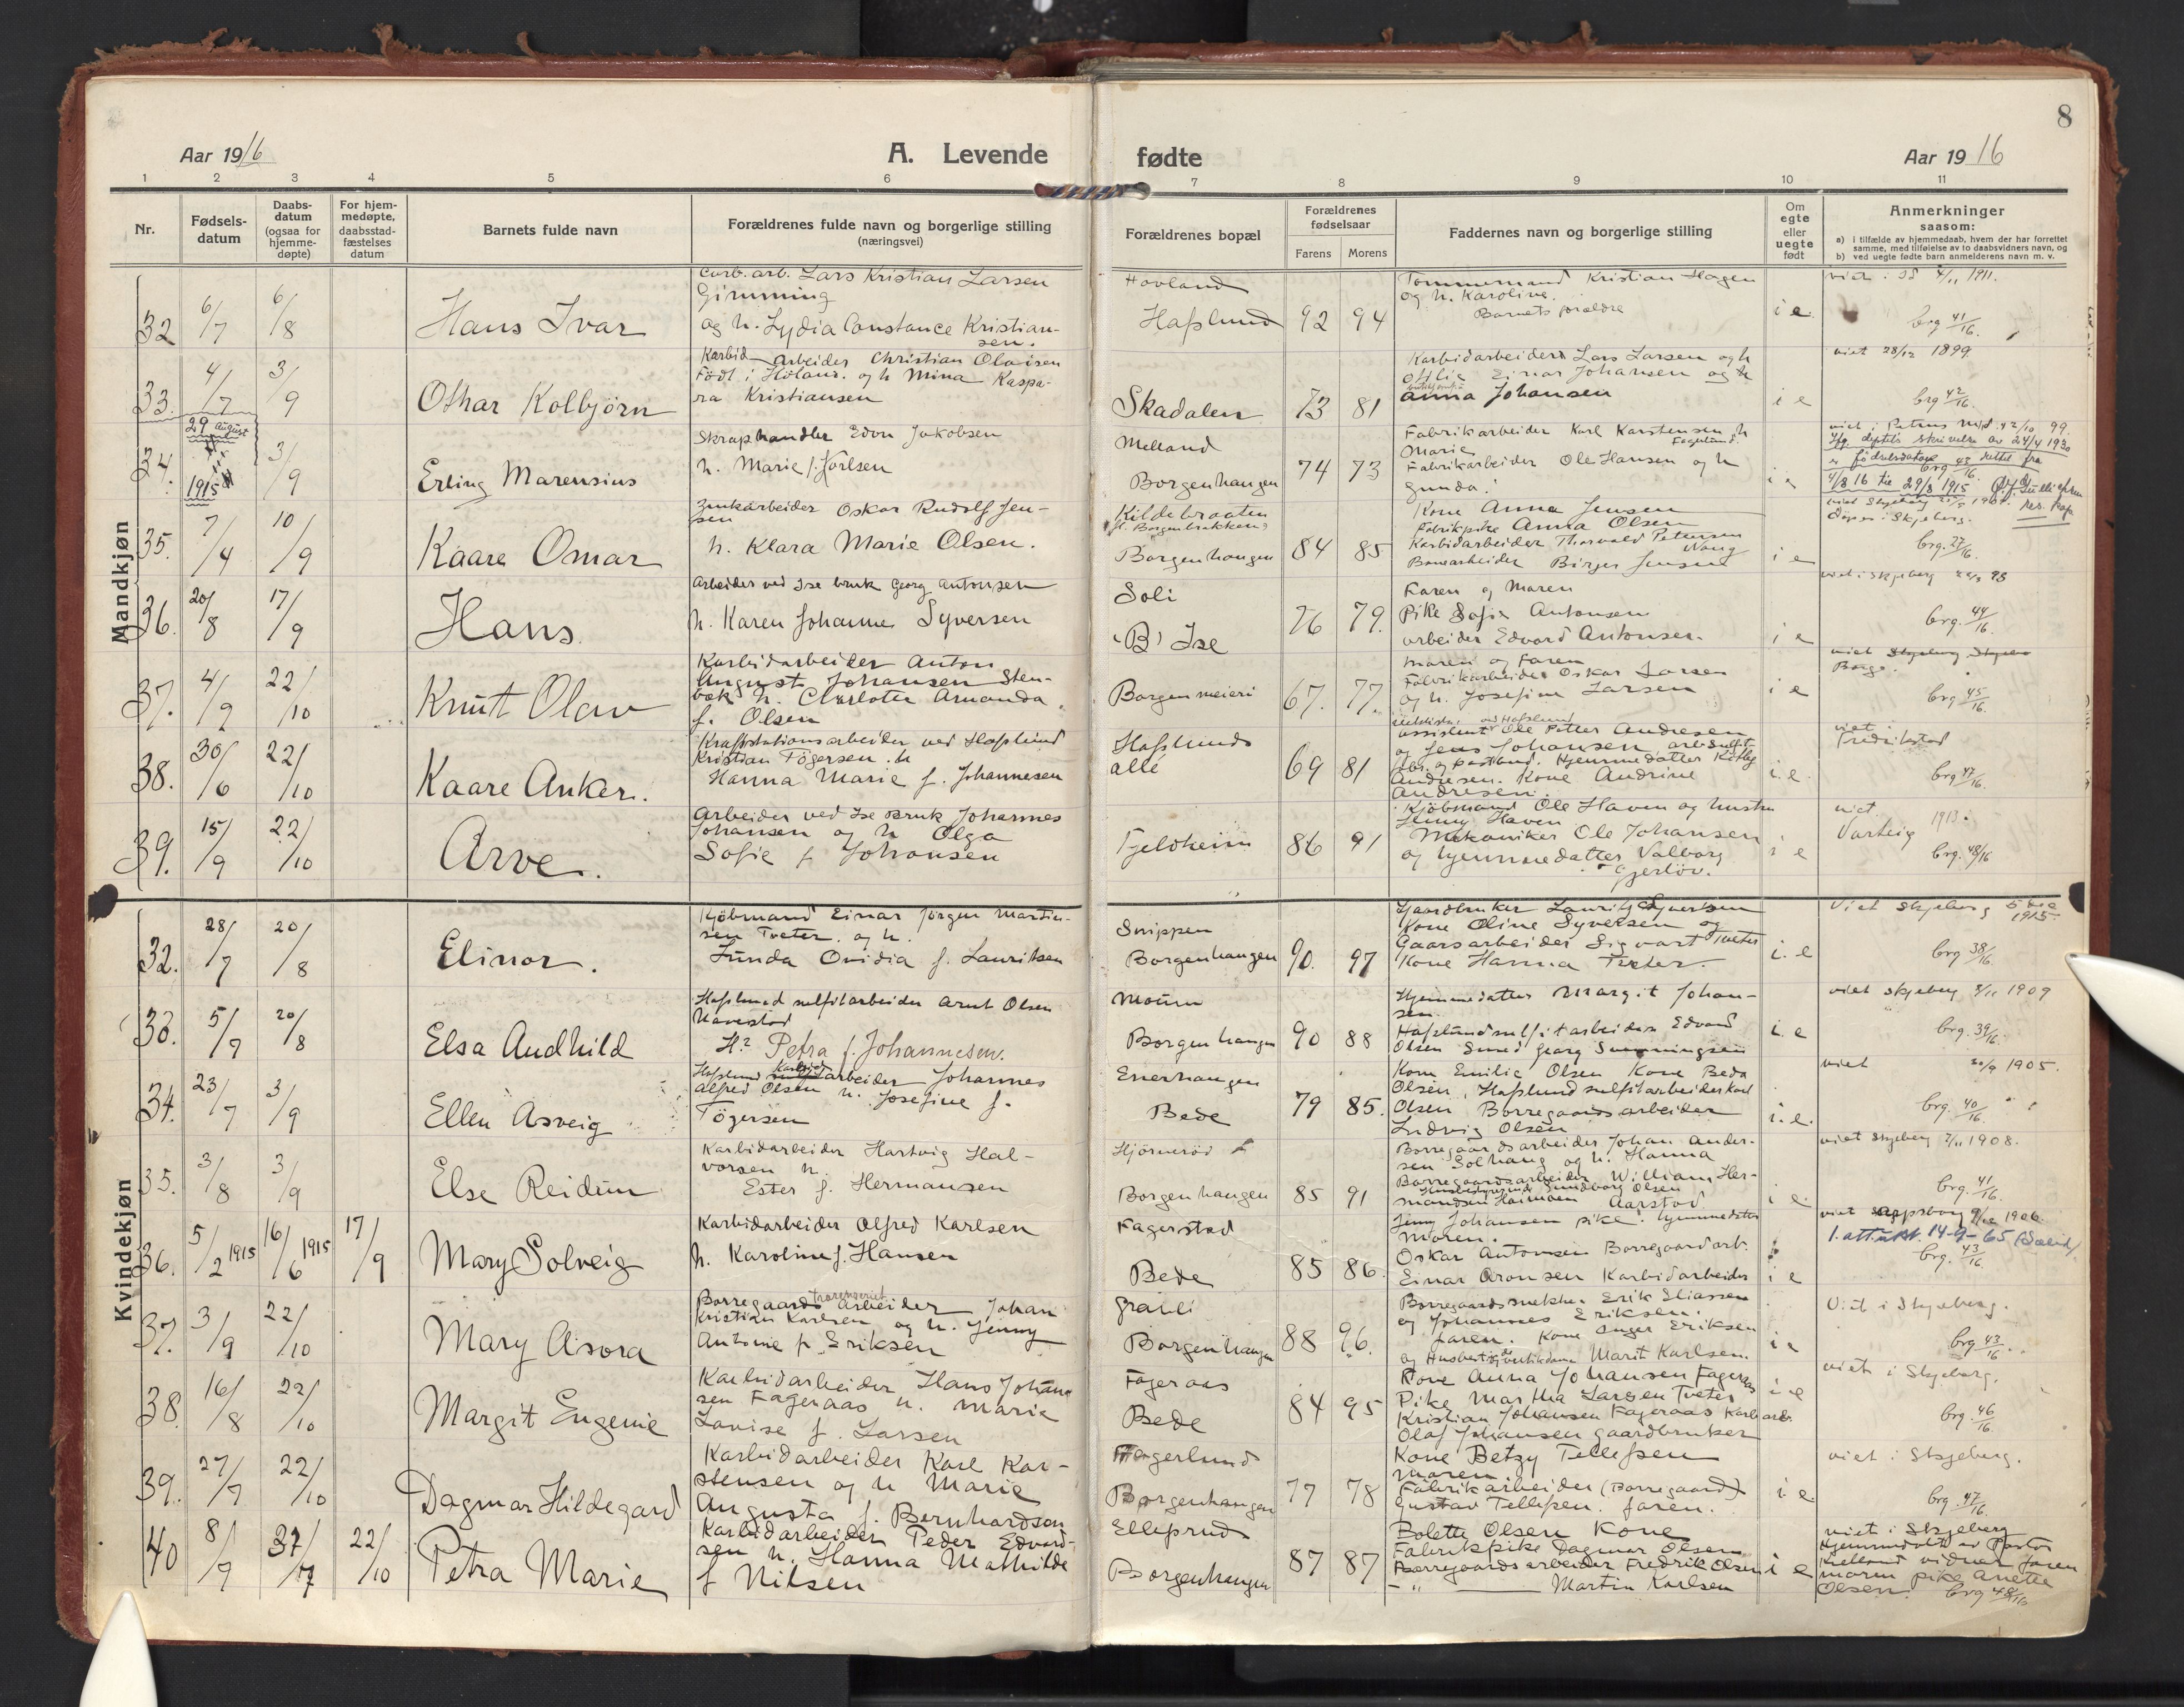 8
Aar 1916
A. Levende
fødte
Aar 1916
1 2 3 4 5 6 7 8 9 10 11
Nr.
Fødsels-
datum
Daabs-
datum
(ogsaa for
hjemme-
døpte)
For hjem-
medøpte,
daabsstad-
fæstelses
datum
Barnets fulde navn
Forældrenes fulde navn og borgerlige stilling
(næringsvei)
Forældrenes bopæl
Forældrenes
fødselsaar
Farens Morens
Faddernes navn og borgerlige stilling
Om
egte
eller
uegte
født
Anmerkninger
saasom:
a) i tilfælde av hjemmedaab, hvem der har forrettet
samme, med tilføielse av to daabsvidners navn, og
b) ved uegte fødte barn anmelderens navn m. v.
Mandkjøn
32 6/7 6/8 Hans Ivar
carb. arb. Lars Kristian Larsen
Gimming
og h. Lydia Constance Kristian-
sen.
Hovland
Hafslund 92 94
Tommermand Kristian Hagen
og h. Karoline.
Barnets forældre
i e
4/11 1911.
brg 41/16.
33. 4/7 3/9 Othar Kolbjörn
Karbid-arbeider Christian Olaisen
Födt i Höland. og h Mina Kaspa-
ra Kristiansen
Skadalen 73 81
Karbidarbeider Lars Larsen og h
Otilie Einar Johansen og h
Anna Johansen
i e
viet 28/12 1899
brg 42/16.
34. 29 August 1915 3/9 Erling Marensius
Skraphandler Edon Jakobsen
h. Marie f. Karlsen
Melland
Borgenhaugen 74 73
Fabrikarbeider Karl Karstensen h
Fagerlund.
Marie
Fabrikarbeider Ole Hansen og h
Gunda.
i e
99.
skrivelse av 24/4 1930
födselsdatoen rettet fra
brg 43/16.
4/8 16 til 29/8 1915
35. 7/4 10/9 Kaare Omar
Zinkarbeider Oskar Rudolf Jen-
sen
h. Klara Marie Olsen.
Kildebraaten
Borgenhaugen 84 85
Kone Anna Jensen
Fabrikpike Anna Olsen
Karbidarbeider Thorvald Pettersen
Birger Jensen
i e
Döpt i Skjeberg.
brg. 27/16.
36. 20/8 17/9 Hans
Arbeider ved Ise bruk Georg Antonsen
h. Karen Johanne Syversen
Soli
"B" Ise 76 79.
Faren og Maren
Pike Sofie Antonsen
arbeider Edvard Antonsen.
i e
viet i Skjeberg 98
brg. 44/16.
37. 4/9 22/10 Knut Olav
Karbidarbeider Anton
August Johansen Sten-
bæk h. Charlotte Amanda
f. Olsen
Borgen meieri 67. 77.
Moren og faren
Fabrikarbeider Oskar Larsen
og h. Josefine Larsen
i e
viet
Borge.
brg 45/16.
38. 30/6 22/10 Kaare Anker.
Kraftstationsarbeider ved Hafslund
Kristian Tögersen. h
Hanna Marie f. Johannesen
Hafslunds
allé 69 81
assistent Ole Petter Andresen
og Jens Johansen
Hjemmedatter
Andresen. Kone Andrine
Andresen.
i e
viet i
Fredrikstad
brg 47/16.
39. 15/9 22/10 Arve.
Arbeider ved Ise Bruk Johannes
Johansen og h Olga
Sofie f Johansen
Fjeldheim 86 91
Kjöbmand Ole Haven og hustru
Jenny Haven
Mekaniker Ole Johansen
og hjemmedatter Valborg
Gjerlöv.
i e
viet
1913.
Varteig
brg. 48/16
Kvindekjøn
32. 28/7 20/8 Elinor.
Kjöbmand Einar Jörgen Martin-
sen Tveter. og h.
Lunda Ovidia f. Lauritsen
Snippen
Borgenhaugen 90. 97
Gaardbruker Lauritz Syversen
Kone Oline Syversen og
Gaardsarbeider Sigvart Tveter
Kone Hanna Tveter.
i. e
Viet Skjeberg 5 dec
1915
brg 38/16.
33. 5/7 20/8 Elsa Audhild
Hafslund sulfitarbeider Arnt Olsen
Navestad
H? Petra f. Johannesen.
Moum
Borgenhaugen 90 88
Hjemmedatter Margit Johan-
sen.
Hafslund sulfitarbeider Edvard
Olsen Smed Georg
i. e
viet Skjeberg 8/11 1909
brg. 39/16.
34. 23/7 3/9 Ellen Asveig
Hafslund Karbidarbeider Johannes
Alfred Olsen h. Josefine f.
Tögersen
Enerhaugen
Bede 79 85.
Kone Emilie Olsen Kone Beda
Olsen, Hafslund sulfitarbeider Karl
Olsen Borregaardsarbeider
Ludvig Olsen
i. e.
viet 20/9 1905.
brg. 40/16.
35. 3/8 3/9 Else Reidun
Karbidarbeider Hartvig Hal-
vorsen h.
Ester f. Hermansen
Hjörneröd
Borgenhaugen 85 91
Borregaardsarbeider Johan Ander-
sen Solhaug og h. Hanna
Borregaardsarbeider William Her-
mandsen
Aarstad
i e
viet Skjeberg 7/11 1908.
brg. 41/16.
36. 5/2 1915 16/6 1915 17/9 Mary Solveig
Karbidarbeider Olfred Karlsen
h. Karoline f. Hansen
Fagerstad
Bede 85 86
Jenny Johansen pike. hjemmedatter
Moren.
Oskar Antonsen Borregaardarb.
Einar Aronsen Karbidarbeider
i e
viet 1906.
1. att. utst. 14-9-65
brg. 43/16
37. 3/9 22/10 Mary Asora
Borregaards arbeider Johan
Kristian Karlsen og h. Jenny
Antonie f. Eriksen
Grauli
Borgenhaugen 88 96.
Borregaardssnekker Erik Eliassen
og Johannes Eriksen.
faren. Kone Inger Eriksen
Marit Karlsen.
i e
Viet i Skjeberg.
brg 43/16.
38. 16/8 22/10 Margit Eugenie
Karbidarbeider Hans Johan-
sen Fageraas h. Marie
Lovise f. Larsen
Fageraas
Bede 84 95
Kone Anna Johansen Fageraas
Pike Martha Larsen Tveter
Kristian Johansen Fageraas Karbarb.
Olaf Johansen gaardbruker
i e
viet i Skjeberg.
brg. 46/16.
39. 27/7 22/10 Dagmar Hildegard
Karbidarbeider Karl Kar-
stensen og h Marie
Augusta f. Bernhardsen
Fagerlund
Borgenhaugen 77 78
Kone Betzy Tellefsen
Maren
Fabrikarbeider (Borregaard)
Gustav Tellefsen. faren.
i e
viet i Skjeberg.
brg. 47/16.
40 8/9 22/10 Petra Marie
Karbidarbeider Peder Edvard-
sen h. Hanna Mathilde
f Nilsen
Ellefsrud
Borgenhaugen 87 87
Bolette Olsen Kone
Fabrikpike Dagmar Olsen
Borregaardsarbeider Fredrik Olsen
-"- Martin Karlsen
i e
viet i Skjeberg
Hjemmedöbt av Pastor
Kielland vidner faren
moren pike Anette
Olsen. brg 48/16